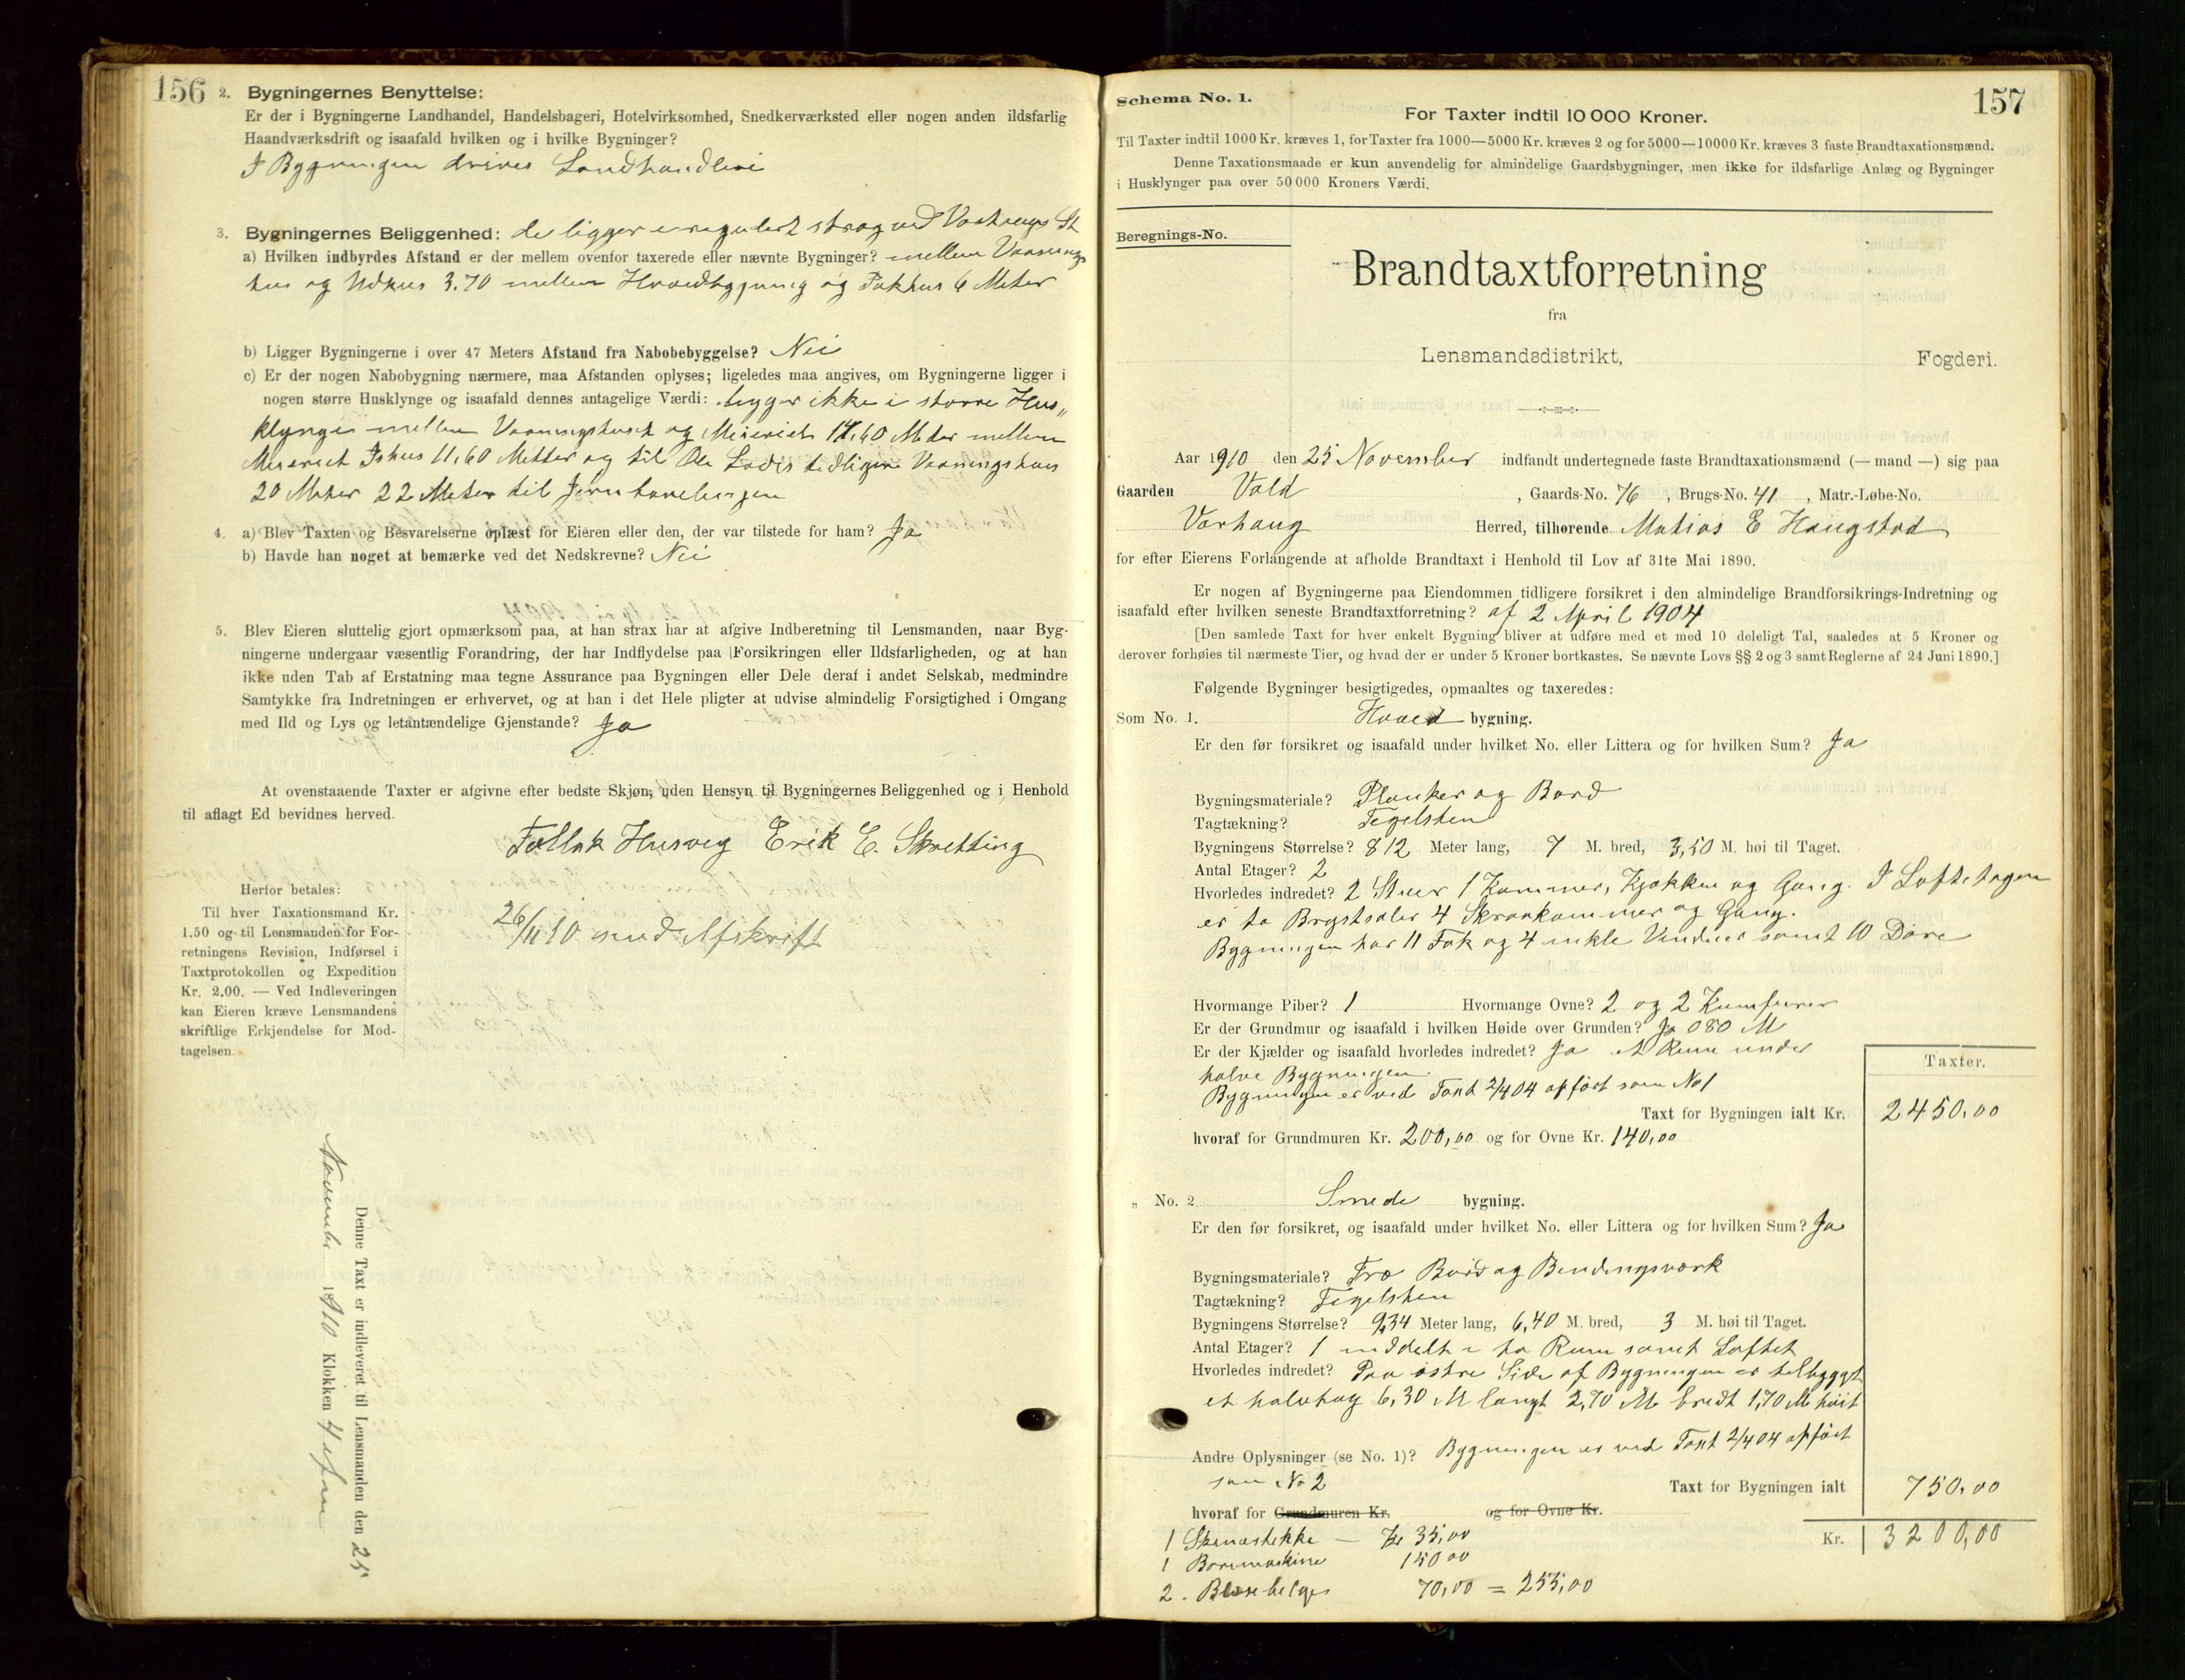 156
2. Bygningernes Benyttelse:
Er der i Bygningerne Landhandel, Handelsbageri, Hotelvirksomhed, Snedkerværksted eller nogen anden ildsfarlig
Haandværksdrift og isaafald hvilken og i hvilke Bygninger?
I Bygningen drives Landhandleri
3. Bygningernes Beliggenhed: de ligger i regulert strøg ved Varhaugs St
a) Hvilken indbyrdes Afstand er der mellem ovenfor taxerede eller nævnte Bygninger? mellem Vaanings
hus og Udhus 3.70 mellem Hovedbygning og Pakhus 6 Meter
b) Ligger Bygningerne i over 47 Meters Afstand fra Nabobebyggelse? Nei
c) Er der nogen Nabobygning nærmere, maa Afstanden oplyses; ligeledes maa angives, om Bygningerne ligger i
nogen større Husklynge og isaafald dennes antagelige Værdi: ligger ikke i større Hus„
klynge mellem Vaaningshuset og Meieriet 14,60 Meter mellem
Meieriet Ishus 11,60 Metter og til Ole Lodes tidligere Vaaningshus
20 Meter 22 Meter til Jernbanelinjen
4. a) Blev Taxten og Besvarelserne oplæst for Eieren eller den, der var tilstede for ham? Ja
b) Havde han noget at bemærke ved det Nedskrevne? Nei
5. Blev Eieren sluttelig gjort opmærksom paa, at han strax har at afgive Indberetning til Lensmanden, naar Byg-
ningerne undergaar væsentlig Forandring, der har Indflydelse paa Forsikringen eller Ildsfarligheden, og at han
ikke uden Tab af Erstatning maa tegne Assurance paa Bygningen eller Dele deraf i andet Selskab, medmindre
Samtykke fra Indretningen er erhvervet, og at han i det Hele pligter at udvise almindelig Forsigtighed i Omgang
med Ild og Lys og letantændelige Gjenstande? Ja
At ovenstaaende Taxter er afgivne efter bedste Skjøn, uden Hensyn til Bygningernes Beliggenhed og i Henhold
til aflagt Ed bevidnes herved.
Tollak Husveg Erik E. Skretting
Herfor betales:
Til hver Taxationsmand Kr.
1.50 og til Lensmanden for For-
retningens Revision, Indførsel i
Taxtprotokollen og Expedition
Kr. 2,00. — Ved Indleveringen
kan Eieren kræve Lensmandens
skriftlige Erkjendelse for Mod-
tagelsen.
26/11 10 med Afskrift
Denne Taxt er indleveret til Lensmanden den 25
November 1910 Klokken 4 efm
157
Schema No. 1.
For Taxter indtil 10 000 Kroner.
Til Taxter indtil 1000 Kr. kræves 1, for Taxter fra 1000—5000 Kr. kræves 2 og for 5000—10000 Kr. kræves 3 faste Brandtaxationsmænd.
Denne Taxationsmaade er kun anvendelig for almindelige Gaardsbygninger, men ikke for ildsfarlige Anlæg og Bygninger
i Husklynger paa over 50 000 Kroners Værdi.
Beregnings-No.
Brandtaxtforretning
fra
Lensmandsdistrikt, Fogderi.
Aar 1910 den 25 November indfandt undertegnede faste Brandtaxationsmænd (— mand —) sig paa
Gaarden Vold, Gaards-No. 76, Brugs-No. 41, Matr.-Løbe-No.
Varhaug Herred, tilhørende Matias E Haugstad
for efter Eierens Forlangende at afholde Brandtaxt i Henhold til Lov af 31te Mai 1890.
Er nogen af Bygningerne paa Eiendommen tidligere forsikret i den almindelige Brandforsikrings-Indretning og
isaafald efter hvilken seneste Brandtaxtforretning? af 2 April 1904
[Den samlede Taxt for hver enkelt Bygning bliver at udføre med et med 10 deleligt Tal, saaledes at 5 Kroner og
derover forhøies til nærmeste Tier, og hvad der er under 5 Kroner bortkastes. Se nævnte Lovs §§ 2 og 3 samt Reglerne af 24 Juni 1890.]
Følgende Bygninger besigtigedes, opmaaltes og taxeredes:
Som No. 1. Hoved bygning.
Er den før forsikret og isaafald under hvilket No. eller Littera og for hvilken Sum? Ja
Bygningsmateriale? Planker og Bord
Tagtækning? Tegelsten
Bygningens Størrelse? 812 Meter lang, 7 M. bred, 3,50 M. høi til Taget.
Antal Etager? 2
Hvorledes indredet? 2 Stuer 1 Kammer, Kjøkken og Gang. I Loftetagen
er to Brystsaler 4 Skraakammer og Gang.
Bygningen har 11 Fak og 4 enkle Vinduer samt 10 Døre
Hvormange Piber? 1 Hvormange Ovne? 2 og 2 Kumfurer
Er der Grundmur og isaafald i hvilken Høide over Grunden? Ja 080 M
Er der Kjælder og isaafald hvorledes indredet? Ja et Rum under
halve Bygningen.
Bygningen er ved Taxt 2/4 04 opført som No 1
Taxter.
Taxt for Bygningen ialt Kr. 2450,00
hvoraf for Grundmuren Kr. 200,00 og for Ovne Kr. 140,00
„ No. 2 Smede bygning.
Er den før forsikret, og isaafald under hvilket No. eller Littera og for hvilken Sum? Ja
Bygningsmateriale? Træ Bord og Bindingsværk
Tagtækning? Tegelsten
Bygningens Størrelse? 9,34 Meter lang, 6,40 M. bred, 3 M. høi til Taget.
Antal Etager? 1 inddelt i to Rum samt Loftet
Hvorledes indredet? Paa østre Side af Bygningen er tilbyggt
et halvtag 6,30 M langt 2,70 M bredt 1,70 M høit
Andre Oplysninger (se No. 1)? Bygningen er ved Taxt 2/4 04 opført
som No 2
Taxt for Bygningen ialt 750,00
hvoraf for Grundmuren Kr. og for Ovne Kr.
Kr. 3200,00
1 — Kr 35,00
1 Boremaskine 150 00
2. Blæsebelge 70,00 = 255,00